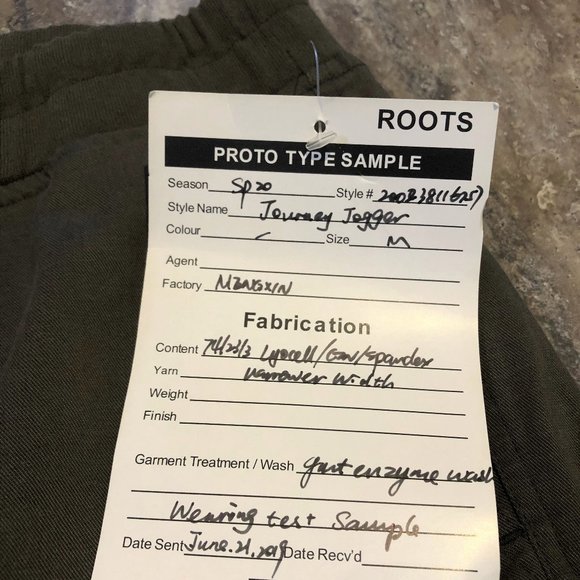 ROOTS
PROTO TYPE SAMPLE
Season SP20 Style #
Style Name Journey Jogger
Colour Size M
Agent
Factory MENGXIN
Fabrication
Content 74/23/3 Lyocell/Con/Spandex
Yarn narrower width
Weight
Finish
Garment Treatment / Wash gmt enzyme wash
Wearing test Sample
Date Sent June.21,2019 Date Recv'd